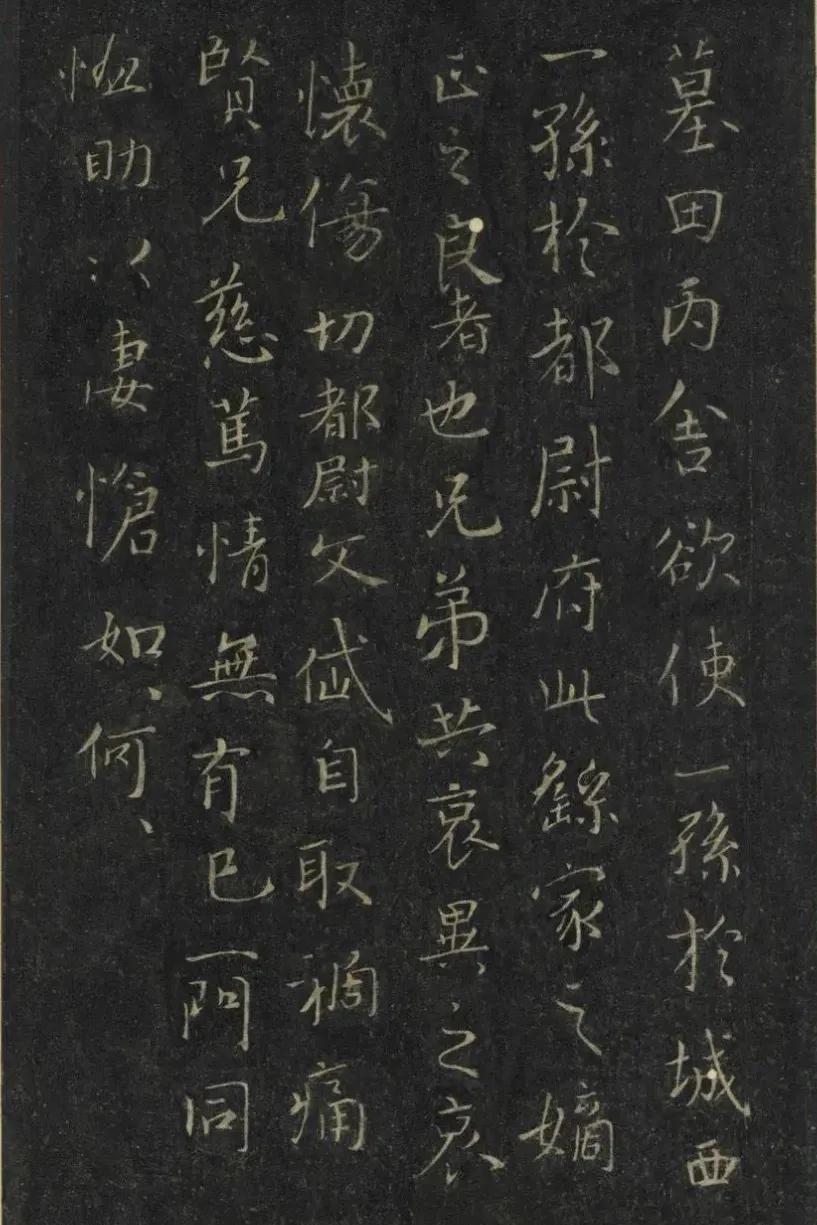 墓田丙舍欲使一孫於城西
一孫於都尉府此繇家之嫡
正之良者也兄弟共哀異之哀
懷傷切都尉文岱自取禍痛
賢兄慈篤情無有已一門同
恤助以悽愴如、何、